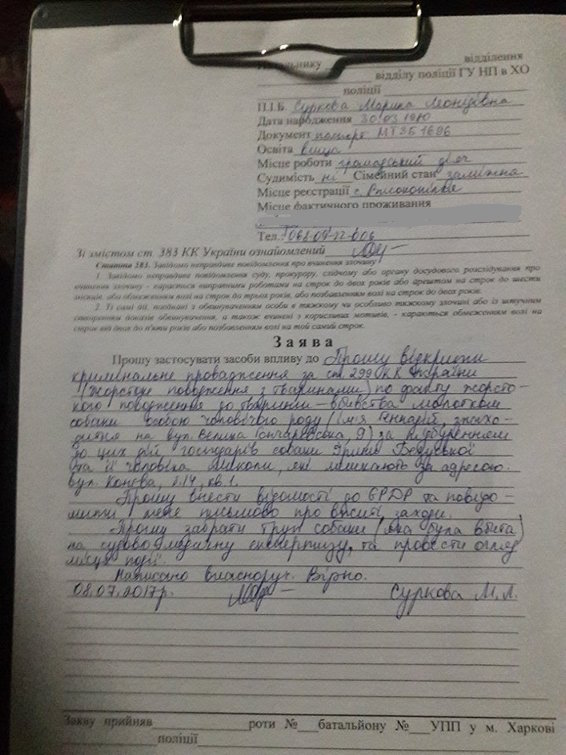 Начальнику відділення
відділу поліції ГУ НП в ХО
поліції
П.І.Б Суркова Марина Леонідівна
Дата народження 30.03.1970
Документ паспорт МТ 361686
Освіта вища
Місце роботи громадський діяч
Судимість ні Сімейний стан заміжня
Місце реєстрації с.
Місце фактичного проживання
Тел.:
Зі змістом ст. 383 КК України ознайомлений
Стаття 383. Завідомо неправдиве повідомлення про вчинення злочину
1. Завідомо неправдиве повідомлення суду, прокурору, слідчому або органу досудового розслідування про
вчинення злочину - карається виправними роботами на строк до двох років або арештом на строк до шести
місяців, або обмеженням волі на строк до трьох років, або позбавленням волі на строк до двох років.
2. Ті самі дії, поєднані з обвинуваченням особи в тяжкому чи особливо тяжкому злочині або із штучним
створенням доказів обвинувачення, а також вчинені з корисливих мотивів, - караються обмеженням волі на
строк від двох до п'яти років або позбавленням волі на той самий строк.
Заява
Прошу застосувати засоби впливу до Прошу відкрити
кримінальне провадження за ст. 299 КК України
(жорстоке поводження з тваринами) по факту жорсто-
кого поводження до тварини – вбивства молотком
собаки особою чоловічого роду (імя Геннадій, знахо-
дится на вул. Велика Гончарівська, 9) за підбуренням
до цих дій господарів собаки Ярини
та її чоловіка Миколи, які мешкають за адресою:
вул. Конєва, б. 14, кв. 1.
Прошу внести відомості до ЄРДР та повідо-
мити мене письмово про вжиті заходи.
Прошу забрати труп собаки (яка була вбита)
на судово-медичну експертизу, та провести огляд
місця події.
Написано власноруч. Вірно.
08.07.2017р. Суркова М.Л.
Заяву прийняв роти № батальйону № УПП у м. Харкові
поліції